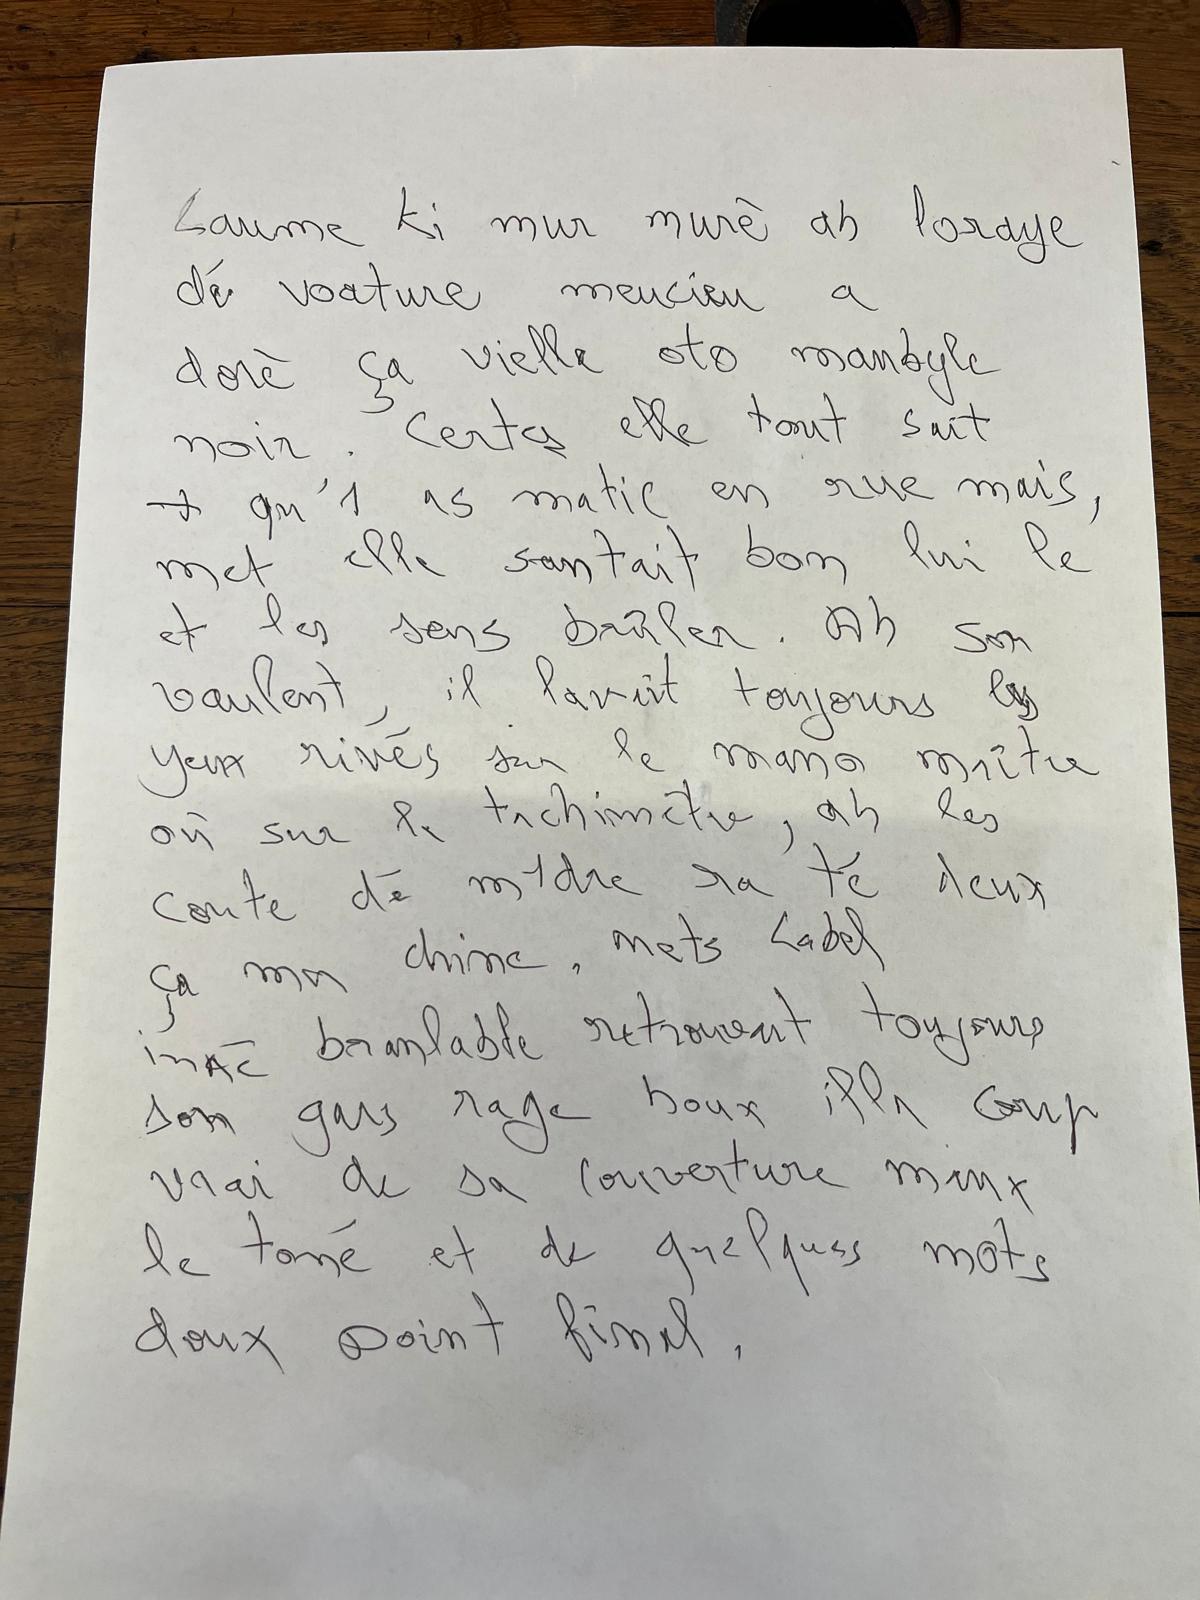 Laume ki mur murè ah loraye
dé voature meucieu a
dorè ça vielle oto manbyle
noir. Certes elle tout sait
→ qu'1 as matic en rue mais,
met elle santait bon lui le
et les sens brûler. Ah son
vaulent, il lavait toujours les
yeux rivés sur le mano maître
où sur le tachimètre, ah les
coute dé m1dre ra té deux
ça ma chine. Mets Label
inné branlable retrouvent toujours
son gars rage boux illa coup
vrai de sa couverture manx
le toné et de quelques mots
doux point final.